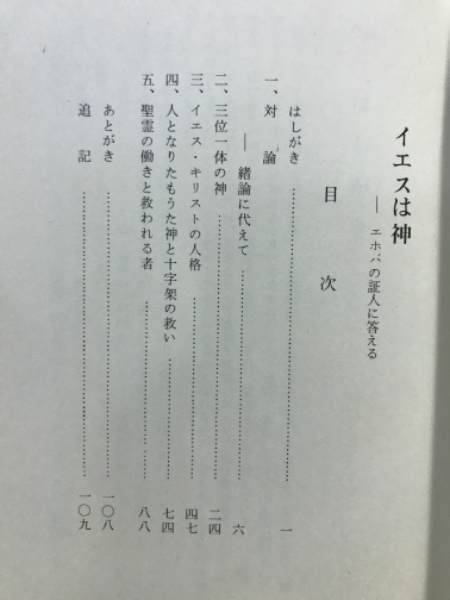 イエスは神
― エホバの証人に答える
目次
はしがき……………………一
一、対論
― 緒論に代えて……………………六
二、三位一体の神……………………二四
三、イエス・キリストの人格……………………四七
四、人となりたもうた神と十字架の救い……………………七四
五、聖霊の働きと救われる者……………………八八
あとがき……………………一〇八
追記……………………一〇九